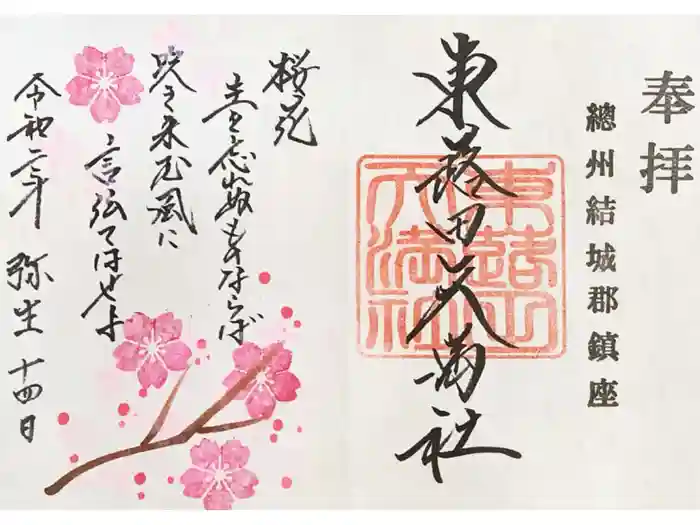 奉拝
總州結城郡鎮座
東蕗田天満社
東蕗田天満社
桜花
主を忘れぬものならば
咲き来む風に
言伝てはせよ
令和二年 弥生 十四日